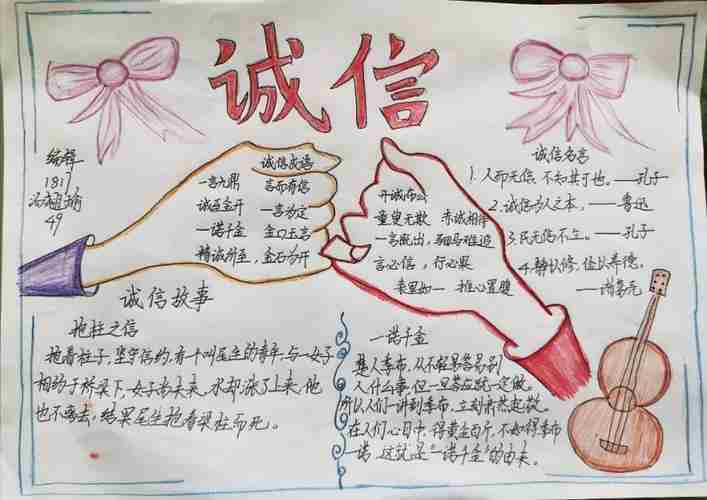 诚信
编辑
1817
49
诚信成语
一言九鼎 言而有信
诚至金开 一言为定
一诺千金 金口玉言
精诚所至，金石为开
开诚布公
童叟无欺 赤诚相待
一言既出，驷马难追
言必信，行必果
表里如一 推心置腹
诚信名言
1.人而无信，不知其可也。——孔子
2.诚信为人之本，——鲁迅
3.民无信不立。——孔子
4.静以修，俭以养德。
——诸葛亮
诚信故事
抱柱之信
抱着柱子，坚守信约，有一个叫尾生的青年，与一女子
相约于桥梁下，女子尚未来，水却涨了上来，他
也不离去，结果尾生抱着梁柱而死。
一诺千金
楚人季布，从不轻易答应别
人什么事，但一旦答应就一定做。
所以人们一讲到季布，立刻肃然起敬。
在人们心目中，得黄金百斤，不如得季布
一诺，这就是“一诺千金”的由来。